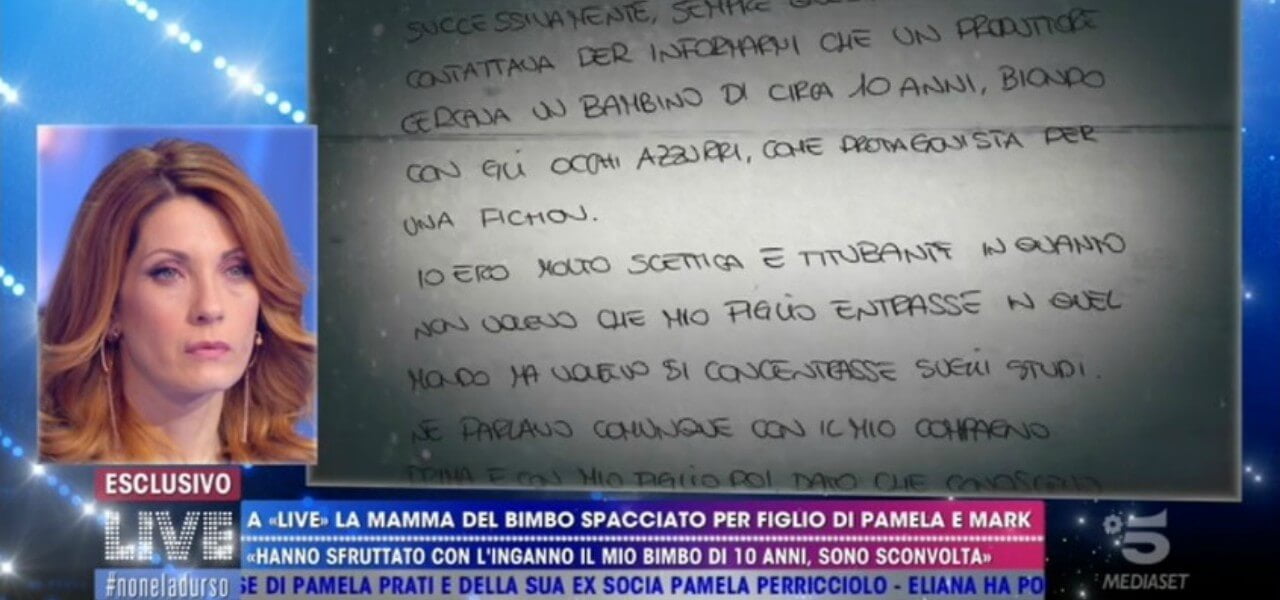 SUCCESSIVAMENTE, SEMPRE
CONTATTAVA PER INFORMARMI CHE UN PRODUTTORE
CERCAVA UN BAMBINO DI CIRCA 10 ANNI, BIONDO
CON GLI OCCHI AZZURRI, COME PROTAGONISTA PER
UNA FICTION.
IO ERO MOLTO SCETTICA E TITUBANTE IN QUANTO
NON VOLEVO CHE MIO FIGLIO ENTRASSE IN QUEL
MONDO MA VOLEVO SI CONCENTRASSE SUGLI STUDI.
NE PARLAVO COMUNQUE CON IL MIO COMPAGNO
PRIMA E CON MIO FIGLIO POI, DATO CHE
ESCLUSIVO
LIVE
A «LIVE» LA MAMMA DEL BIMBO SPACCIATO PER FIGLIO DI PAMELA E MARK
«HANNO SFRUTTATO CON L'INGANNO IL MIO BIMBO DI 10 ANNI, SONO SCONVOLTA»
#noneladurso
SE DI PAMELA PRATI E DELLA SUA EX SOCIA PAMELA PERRICCIOLO - ELIANA HA PO
5
MEDIASET